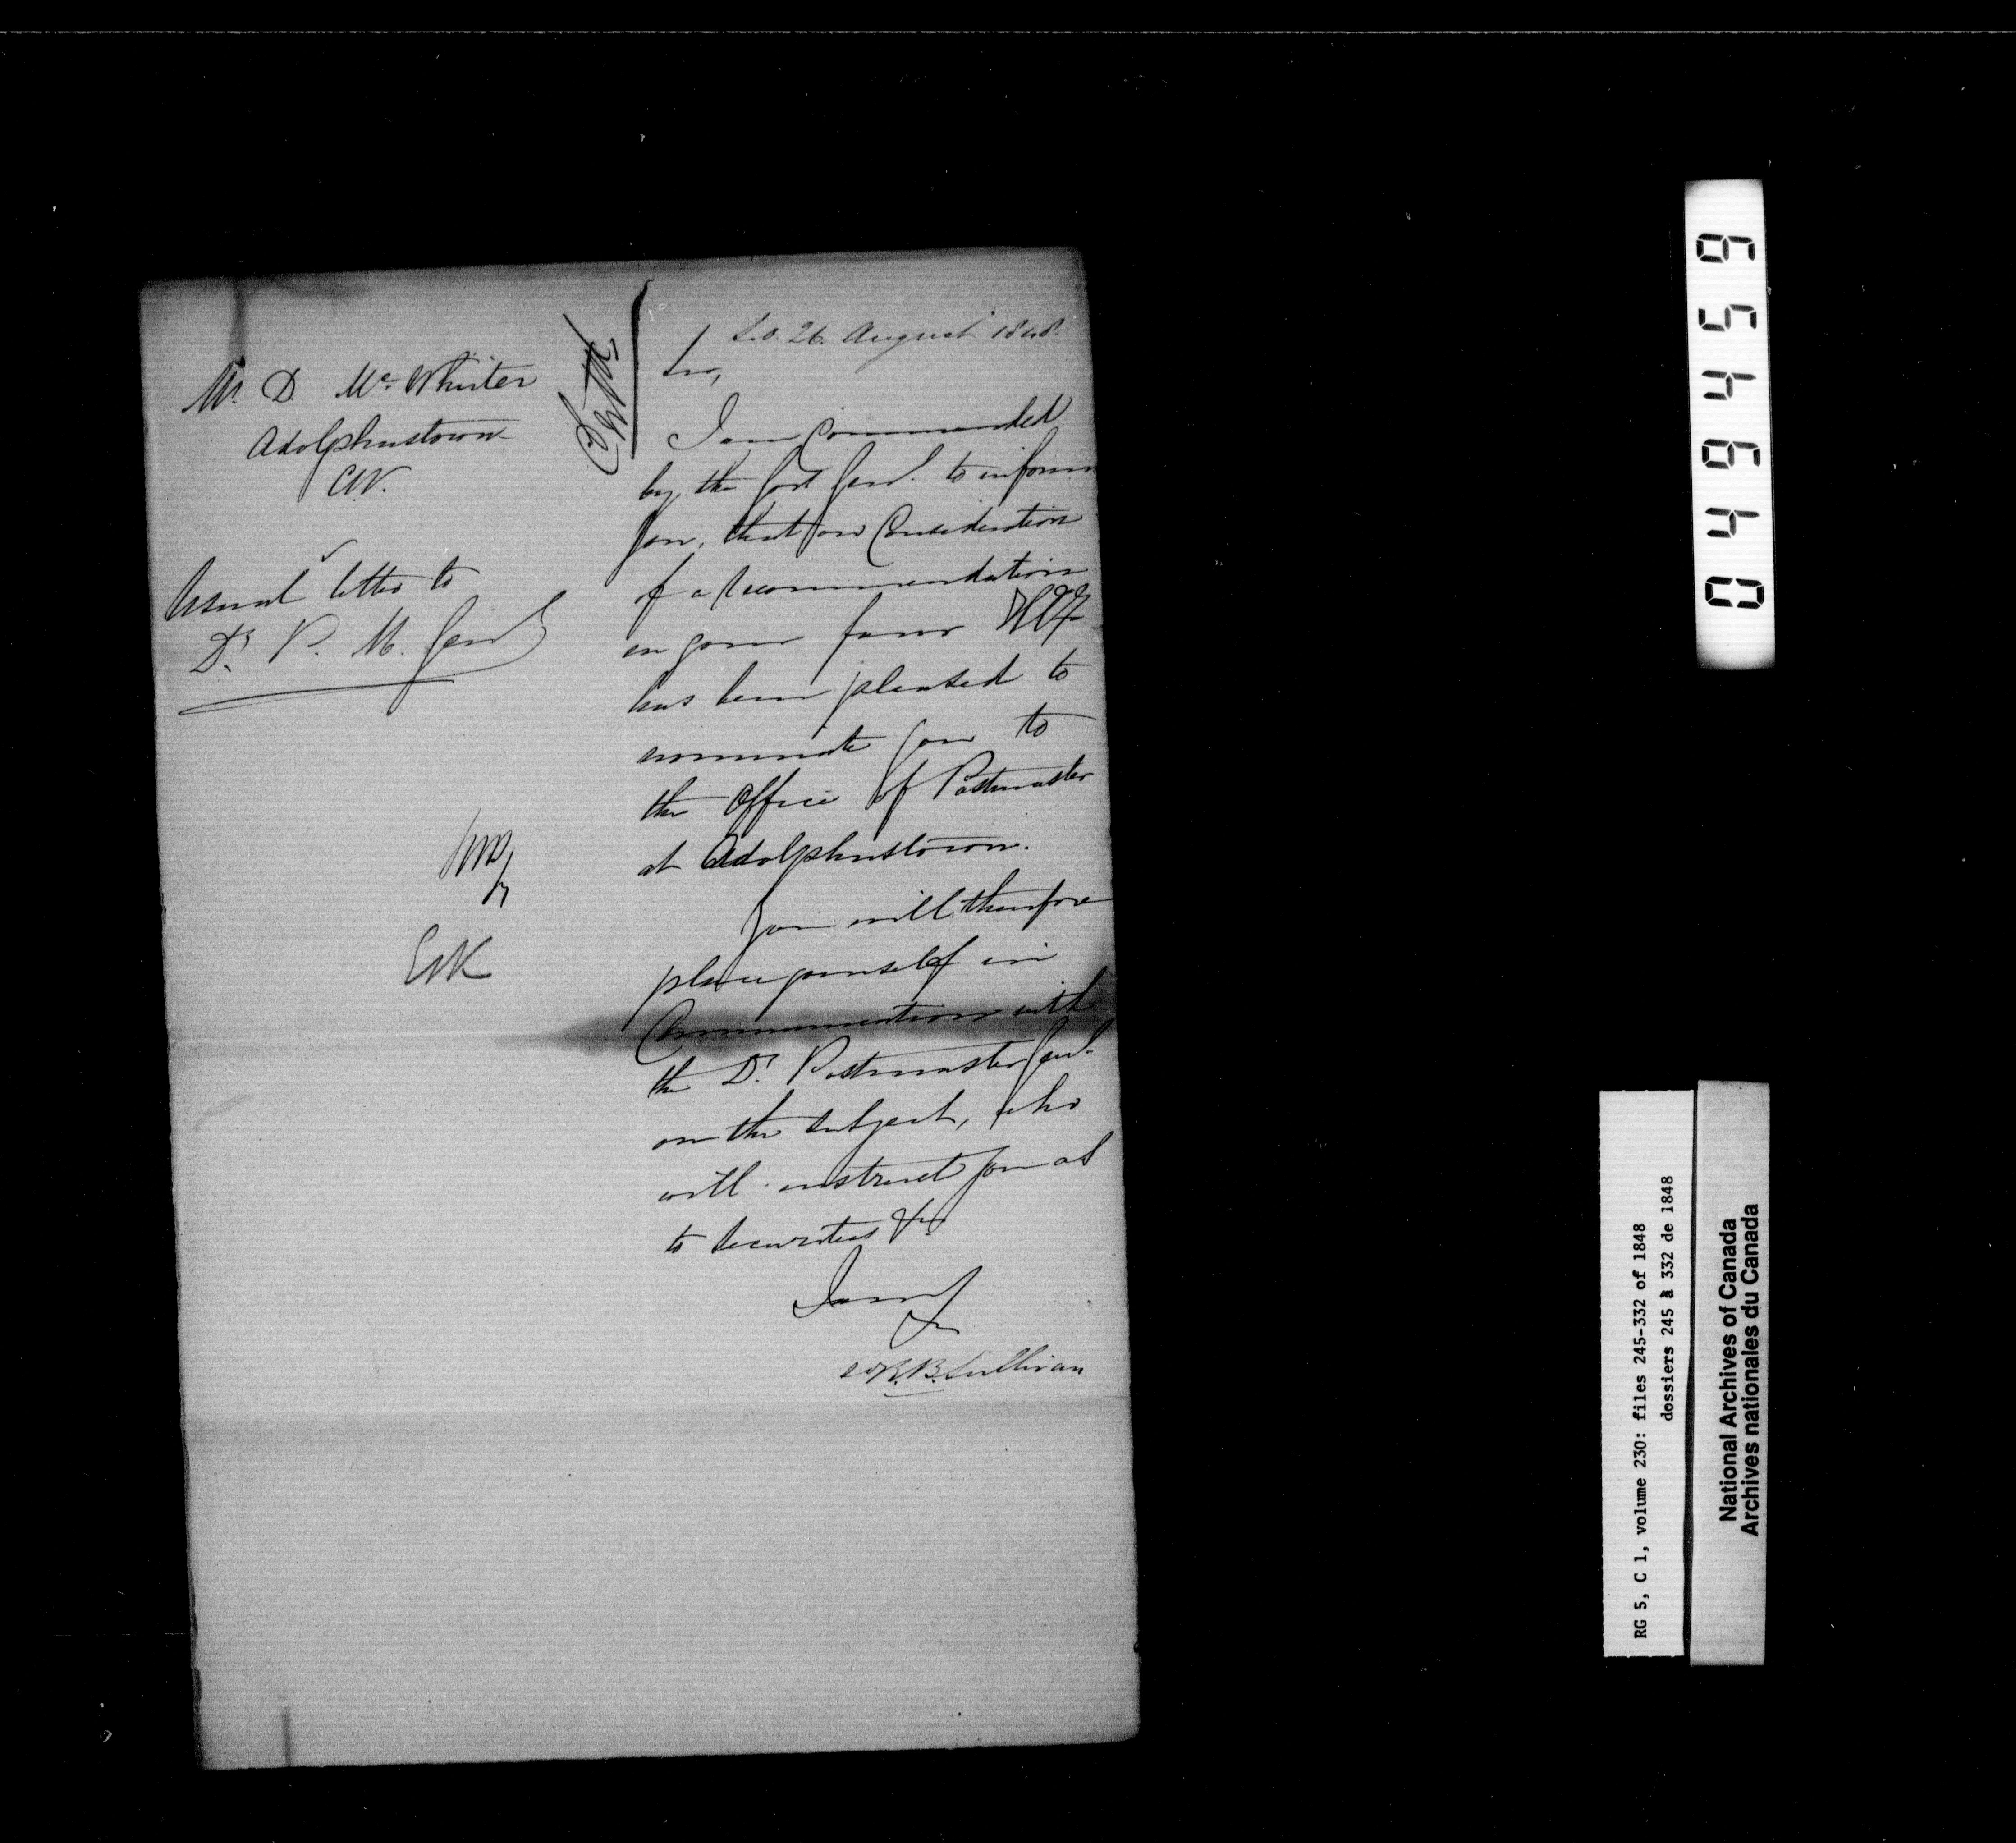 Mr. D. McWhirter
Adolphustown
C.W.
Usual letter to
Dy. P. M. Genl
S.O. 26. August 1848.
Sir,
I am Commanded
by the Govr Genl. to inform
you, that on Consideration
of a recommendation
in your favor HEy
has been pleased to
nominate you to
the Office of Postmaster
at Adolphustown.
You will therefore
place yourself in
Communication with
the Dy. Postmaster Genl.
on the subject, who
will instruct you as
to Securities &c
I am
R.B. Sullivan
044549
RG 5, C 1, volume 230: files 245-332 of 1848
dossiers 245 à 332 de 1848
National Archives of Canada
Archives nationales du Canada